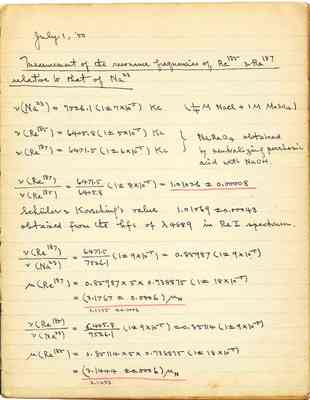 July 1, '50
Measurement of the resonance frequencies of Re¹⁸⁵ & Re¹⁸⁷
relative to that of Na²³
ν(Na²³) = 7526.1 (1±7×10⁻⁵) Kc ( M NaCl + 1M MnSO₄)
ν(Re¹⁸⁵) = 6405.8 (1±5×10⁻⁵) Kc } NaReO₄ obtained
ν(Re¹⁸⁷) = 6471.5 (1±6×10⁻⁵) Kc by neutralizing perrhenic
acid with NaOH.
ν(Re¹⁸⁷)/ν(Re¹⁸⁵) = 6471.5/6405.8 (1±8×10⁻⁵) = 1.01026 ± 0.00008
Schüler & Korsching's value 1.01069 ± 0.00043
obtained from the hfs of λ4889 in Re I spectrum.
ν(Re¹⁸⁷)/ν(Na²³) = 6471.5/7526.1 (1±9×10⁻⁵) = 0.85987 (1±9×10⁻⁵)
μ(Re¹⁸⁷) = 0.85987×5×0.738875 (1±18×10⁻⁵)
= (3.1767 ± 0.0006) μN
ν(Re¹⁸⁵)/ν(Na²³) = 6405.8/7526.1 (1±9×10⁻⁵) = 0.85114 (1±9×10⁻⁵)
μ(Re¹⁸⁵) = 0.85114×5×0.738875 (1±18×10⁻⁵)
= (3.1444 ± 0.0006) μN